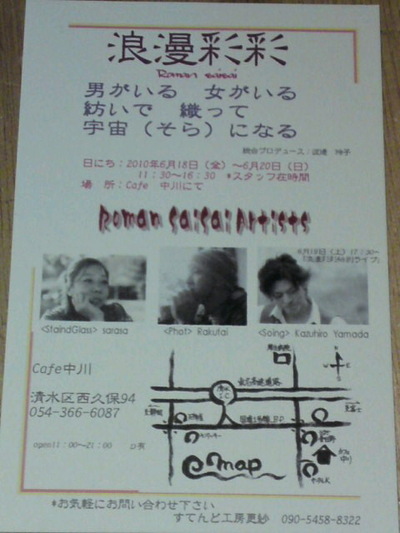 浪漫彩彩
Roman saisai
男がいる 女がいる
紡いで 織って
宇宙（そら）になる
日にち：2010年6月18日（金）〜6月20日（日）
11：30〜16：30 *スタッフ在時間
場 所：Cafe 中川にて
Roman SaiSai Artists
<StaindGlass> sarasa
<Phot> Rakutai
<Song> Kazuhiro Yamada
Cafe中川
清水区西久保94
054-366-6087
open11：00〜21：00 P有
map
*お気軽にお問い合わせ下さい
すてんど工房更紗 090-5458-8322